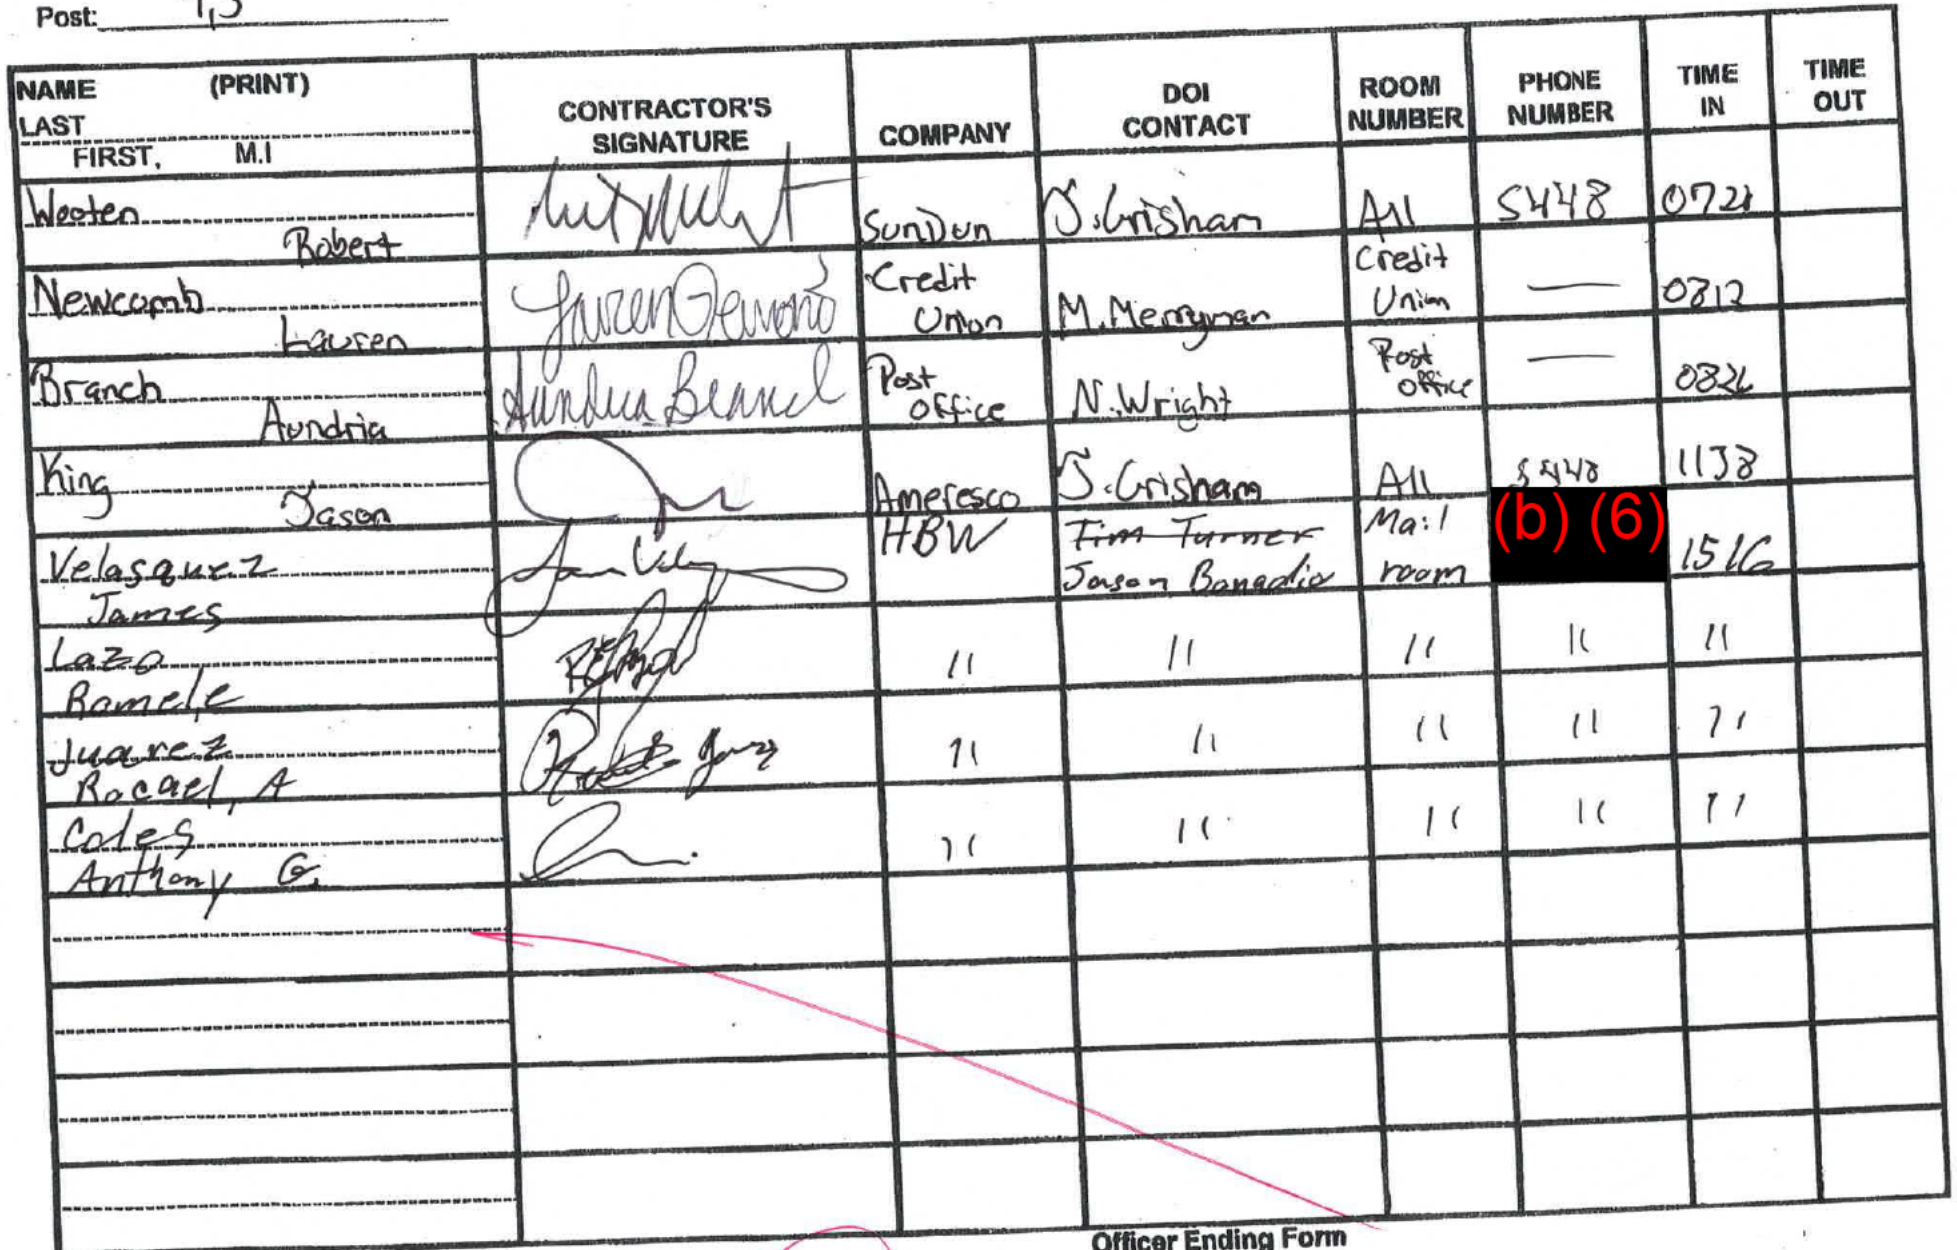 Post: 1,3
NAME (PRINT)
LAST
FIRST, M.I
CONTRACTOR'S
SIGNATURE
COMPANY
DOI
CONTACT
ROOM
NUMBER
PHONE
NUMBER
TIME
IN
TIME
OUT
Wooten
Robert
SunDun
J.Grisham
All
5448
0721
Newcomb
Lauren
Credit
Union
M.Merryman
Credit
Union
—
0812
Branch
Aundria
Aundria Branch
Post
Office
N.Wright
Post
Office
—
0826
King
Jason
Ameresco
J.Grisham
All
5448
1138
Velasquez
James
HBW
Tim Turner
Jason Bonadio
Mail
room
(b) (6)
1516
Lazo
Ramele
11
11
11
11
11
Juarez
Rocael, A
11
11
11
11
11
Coles
Anthony G.
11
11
11
11
11
Officer Ending Form